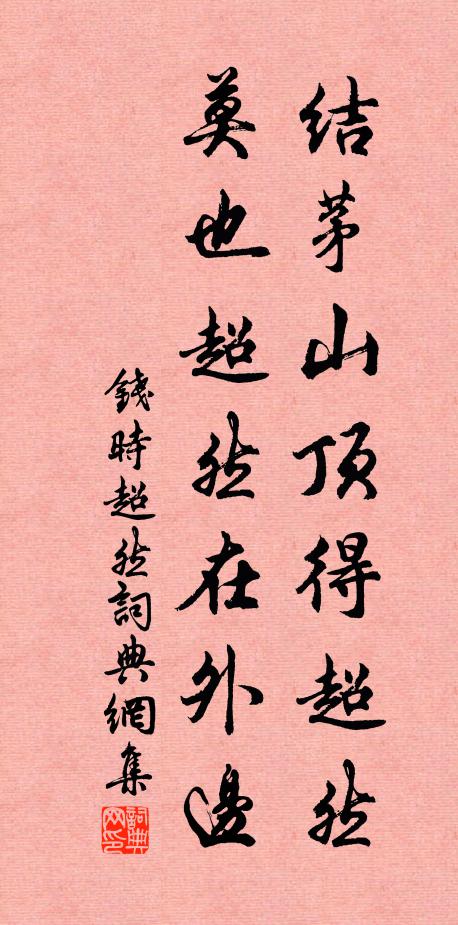 结茅山顶得超然
莫也超然在外边
錢時超然詞典網集
詞典网印